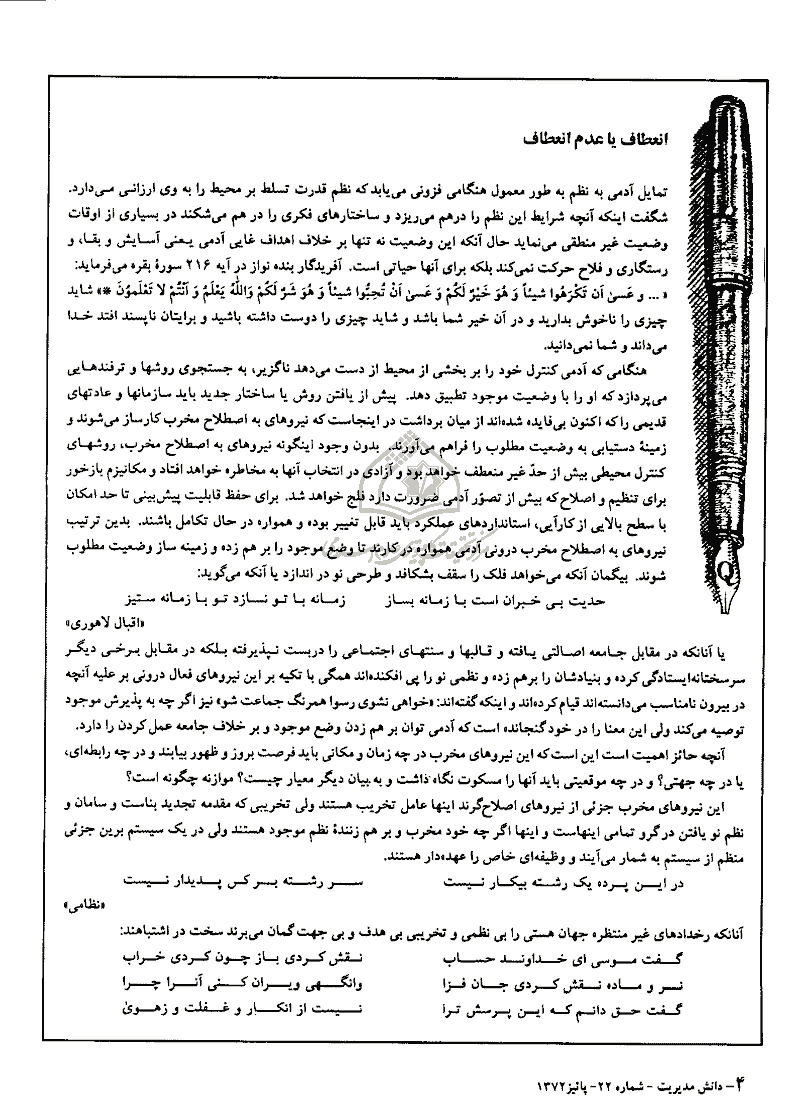 انعطاف یا عدم انعطاف
تمایل آدمی به نظم به طور معمول هنگامی فزونی می‌یابد که نظم قدرت تسلط بر محیط را به وی ارزانی می‌دارد.
شگفت اینکه آنچه شرایط این نظم را درهم می‌ریزد و ساختارهای فکری را در هم می‌شکند در بسیاری از اوقات
وضعیت غیر منطقی می‌نماید حال آنکه این وضعیت نه تنها بر خلاف اهداف غایی آدمی یعنی آسایش و بقاء، و
رستگاری و فلاح حرکت نمی‌کند بلکه برای آنها حیاتی است. آفریدگار بنده نواز در آیه ۲۱۶ سورهٔ بقره می‌فرماید:
«... و عَسیٰ اَن تَکْرَهُوا شَیئاً وَ هُوَ خَیْرٌ لَکُمْ وَ عَسیٰ اَنْ تُحِبُّوا شَیئاً وَ هُوَ شَرٌ لَکُمْ وَاللّٰهُ یَعْلَمُ وَ اَنْتُمْ لا تَعْلَمُونَ *» شاید
چیزی را ناخوش بدارید و در آن خیر شما باشد و شاید چیزی را دوست داشته باشید و برایتان ناپسند افتد خدا
می‌داند و شما نمی‌دانید.
هنگامی که آدمی کنترل خود را بر بخشی از محیط از دست می‌دهد ناگزیر، به جستجوی روشها و ترفندهایی
می‌پردازد که او را با وضعیت موجود تطبیق دهد. پیش از یافتن روش یا ساختار جدید باید سازمانها و عادتهای
قدیمی را که اکنون بی‌فایده شده‌اند از میان برداشت در اینجاست که نیروهای به اصطلاح مخرب کارساز می‌شوند و
زمینهٔ دستیابی به وضعیت مطلوب را فراهم می‌آورند. بدون وجود اینگونه نیروهای به اصطلاح مخرب، روشهای
کنترل محیطی بیش از حدّ غیر منعطف خواهد بود و آزادی در انتخاب آنها به مخاطره خواهد افتاد و مکانیزم بازخور
برای تنظیم و اصلاح که بیش از تصوّر آدمی ضرورت دارد فلج خواهد شد. برای حفظ قابلیت پیش‌بینی تا حد امکان
با سطح بالایی از کارآیی، استانداردهای عملکرد باید قابل تغییر بوده و همواره در حال تکامل باشند. بدین ترتیب
نیروهای به اصطلاح مخرب درونی آدمی همواره در کارند تا وضع موجود را بر هم زده و زمینه ساز وضعیت مطلوب
شوند. بیگمان آنکه می‌خواهد فلک را سقف بشکافد و طرحی نو در اندازد یا آنکه می‌گوید:
حدیت بی خبران است با زمانه بساز زمانه با تو نسازد تو با زمانه ستیز
«اقبال لاهوری»
یا آنانکه در مقابل جامعه اصالتی یافته و قالبها و سنتهای اجتماعی را دربست نپذیرفته بلکه در مقابل برخی دیگر
سرسختانه‌ایستادگی کرده و بنیادشان را برهم زده و نظمی نو را پی افکنده‌اند همگی با تکیه بر این نیروهای فعال درونی بر علیه آنچه
در بیرون نامناسب می‌دانسته‌اند قیام کرده‌اند و اینکه گفته‌اند: «خواهی نشوی رسوا همرنگ جماعت شو» نیز اگر چه به پذیرش موجود
توصیه می‌کند ولی این معنا را در خود گنجانده است که آدمی توان بر هم زدن وضع موجود و بر خلاف جامعه عمل کردن را دارد.
آنچه حائز اهمیت است این است که این نیروهای مخرب در چه زمان و مکانی باید فرصت بروز و ظهور بیابند و در چه رابطه‌ای،
یا در چه جهتی؟ و در چه موقعیتی باید آنها را مسکوت نگاه داشت و به بیان دیگر معیار چیست؟ موازنه چگونه است؟
این نیروهای مخرب جزئی از نیروهای اصلاح‌گرند اینها عامل تخریب هستند ولی تخریبی که مقدمه تجدید بناست و سامان و
نظم نو یافتن در گرو تمامی اینهاست و اینها اگر چه خود مخرب و بر هم زنندهٔ نظم موجود هستند ولی در یک سیستم برین جزئی
منظم از سیستم به شمار می‌آیند و وظیفه‌ای خاص را عهده‌دار هستند.
در ایـن پـرده یک رشـته بیکـار نیست سـر رشـته بـر کس پـدیدار نیست
«نظامی»
آنانکه رخدادهای غیر منتظره جهان هستی را بی نظمی و تخریبی بی هدف و بی جهت گمان می‌برند سخت در اشتباهند:
گفت موسی ای خداوند حساب نقش کردی باز چون کردی خراب
نر و ماده نقش کردی جان فزا وانگهی ویران کنی آنرا چرا
گفت حق دانم که این پرسش ترا نیست از انکار و غفلت و زهویٰ
۴- دانش مدیریت - شماره ۲۲- پائیز ۱۳۷۲
Q